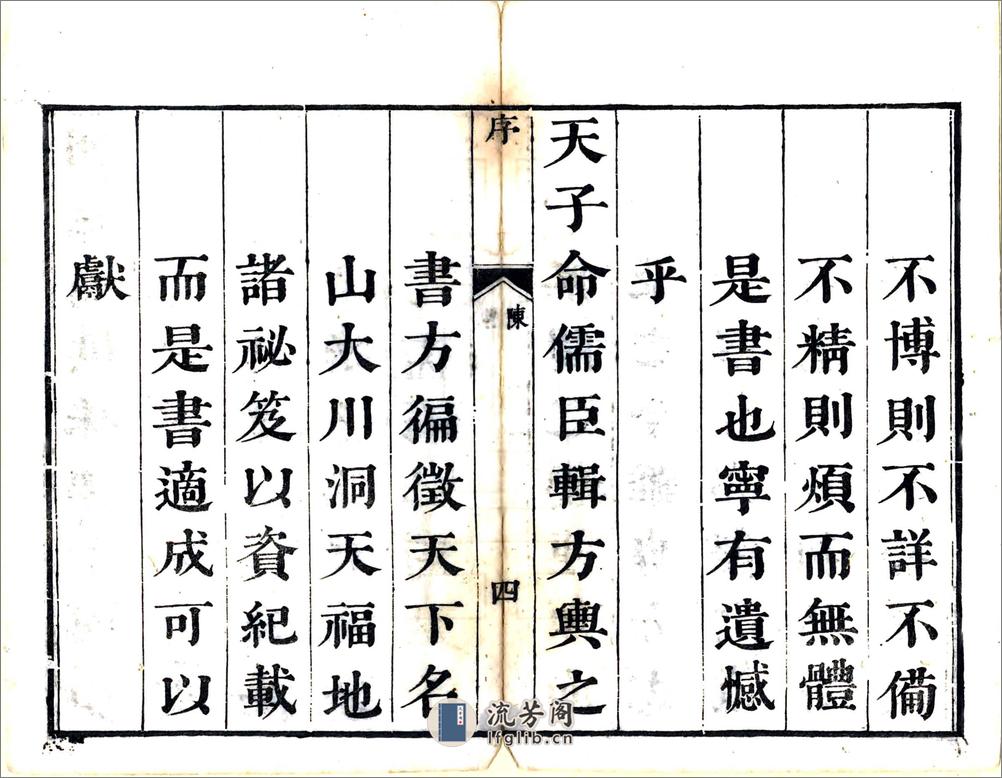 不博則不詳不備
不精則煩而無體
是書也寧有遺憾
乎
天子命儒臣輯方輿之
序
陳
四
書方徧徵天下名
山大川洞天福地
諸祕笈以資紀載
而是書適成可以
獻
流芳阁
lfglib.cn